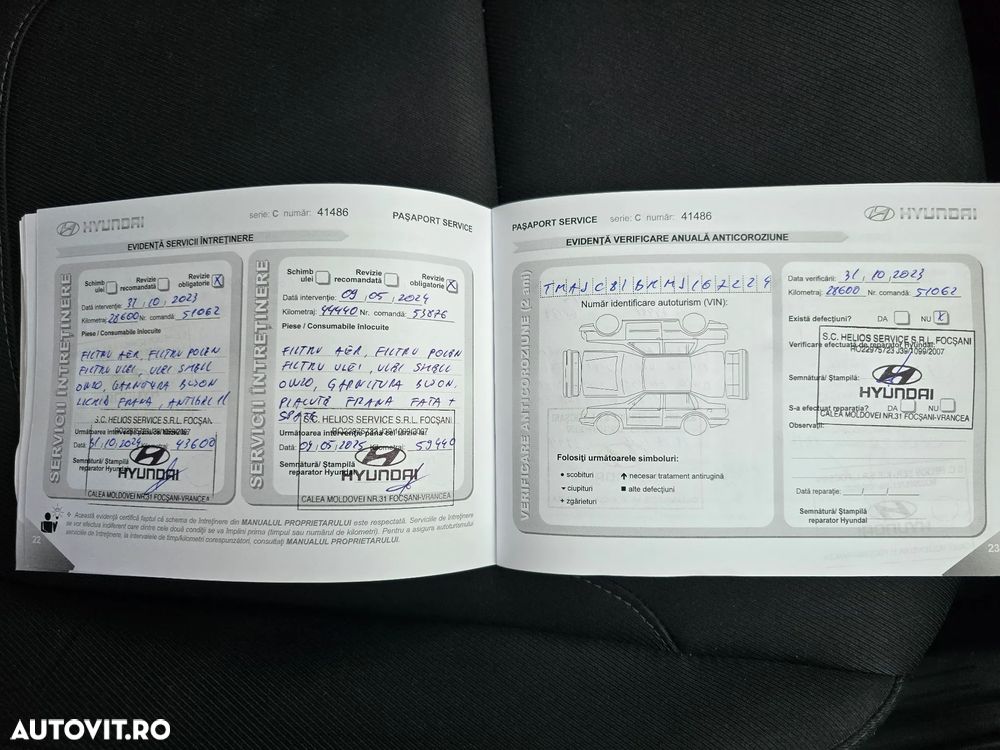 HYUNDAI
serie: C număr: 41486
PAȘAPORT SERVICE
EVIDENȚĂ SERVICII ÎNTREȚINERE
SERVICII ÎNTREȚINERE
Schimb ulei
Revizie recomandată
Revizie obligatorie X
Dată intervenție: 31.10.2023
Kilometraj: 28600 Nr. comandă: 51062
Piese / Consumabile înlocuite
FILTRU AER, FILTRU POLEN
FILTRU ULEI, ULEI SHELL
0W20, GARNITURA BUJON
LICHID FRANA, ANTIGEL
S.C. HELIOS SERVICE S.R.L. FOCȘANI
Dată: 31.10.2024 Kilometraj: 43600
Semnătură/ Ștampilă
reparator Hyundai
HYUNDAI
CALEA MOLDOVEI NR.31 FOCȘANI-VRANCEA
SERVICII ÎNTREȚINERE
Schimb ulei
Revizie recomandată
Revizie obligatorie X
Dată intervenție: 09.05.2024
Kilometraj: 44440 Nr. comandă: 53876
Piese / Consumabile înlocuite
FILTRU AER, FILTRU POLEN
FILTRU ULEI, ULEI SHELL
0W20, GARNITURA BUJON,
PLACUTE FRANA FATA +
SPATE
S.C. HELIOS SERVICE S.R.L. FOCȘANI
Dată: 09.05.2025 Kilometraj: 59440
Semnătură/ Ștampilă
reparator Hyundai
HYUNDAI
CALEA MOLDOVEI NR.31 FOCȘANI-VRANCEA
Această evidență certifică faptul că schema de întreținere din MANUALUL PROPRIETARULUI este respectată. Serviciile de întreținere
se vor efectua indiferent care dintre cele două condiții se va împlini prima (timpul sau numărul de kilometri). Pentru a asigura autoturismului
serviciile de întreținere, la intervalele de timp/kilometri corespunzători, consultați MANUALUL PROPRIETARULUI.
22
PAȘAPORT SERVICE serie: C număr: 41486
HYUNDAI
EVIDENȚĂ VERIFICARE ANUALĂ ANTICOROZIUNE
VERIFICARE ANTICOROZIUNE (2 ani)
Număr identificare autoturism (VIN):
Folosiți următoarele simboluri:
• scobituri
− ciupituri
+ zgârieturi
necesar tratament antirugină
■ alte defecțiuni
Data verificării: 31.10.2023
Kilometraj: 28600 Nr. comandă: 51062
Există defecțiuni? DA NU X
S.C. HELIOS SERVICE S.R.L. FOCȘANI
Verificare efectuată de reparator Hyundai:
RO22975723 J39/1099/2007
Semnătură/ Ștampilă:
HYUNDAI
S-a efectuat reparația? DA NU
CALEA MOLDOVEI NR.31 FOCȘANI-VRANCEA
Observații:
Dată reparație: __/__/__
Semnătură/ Ștampilă
reparator Hyundai
23
AUTOVIT.RO